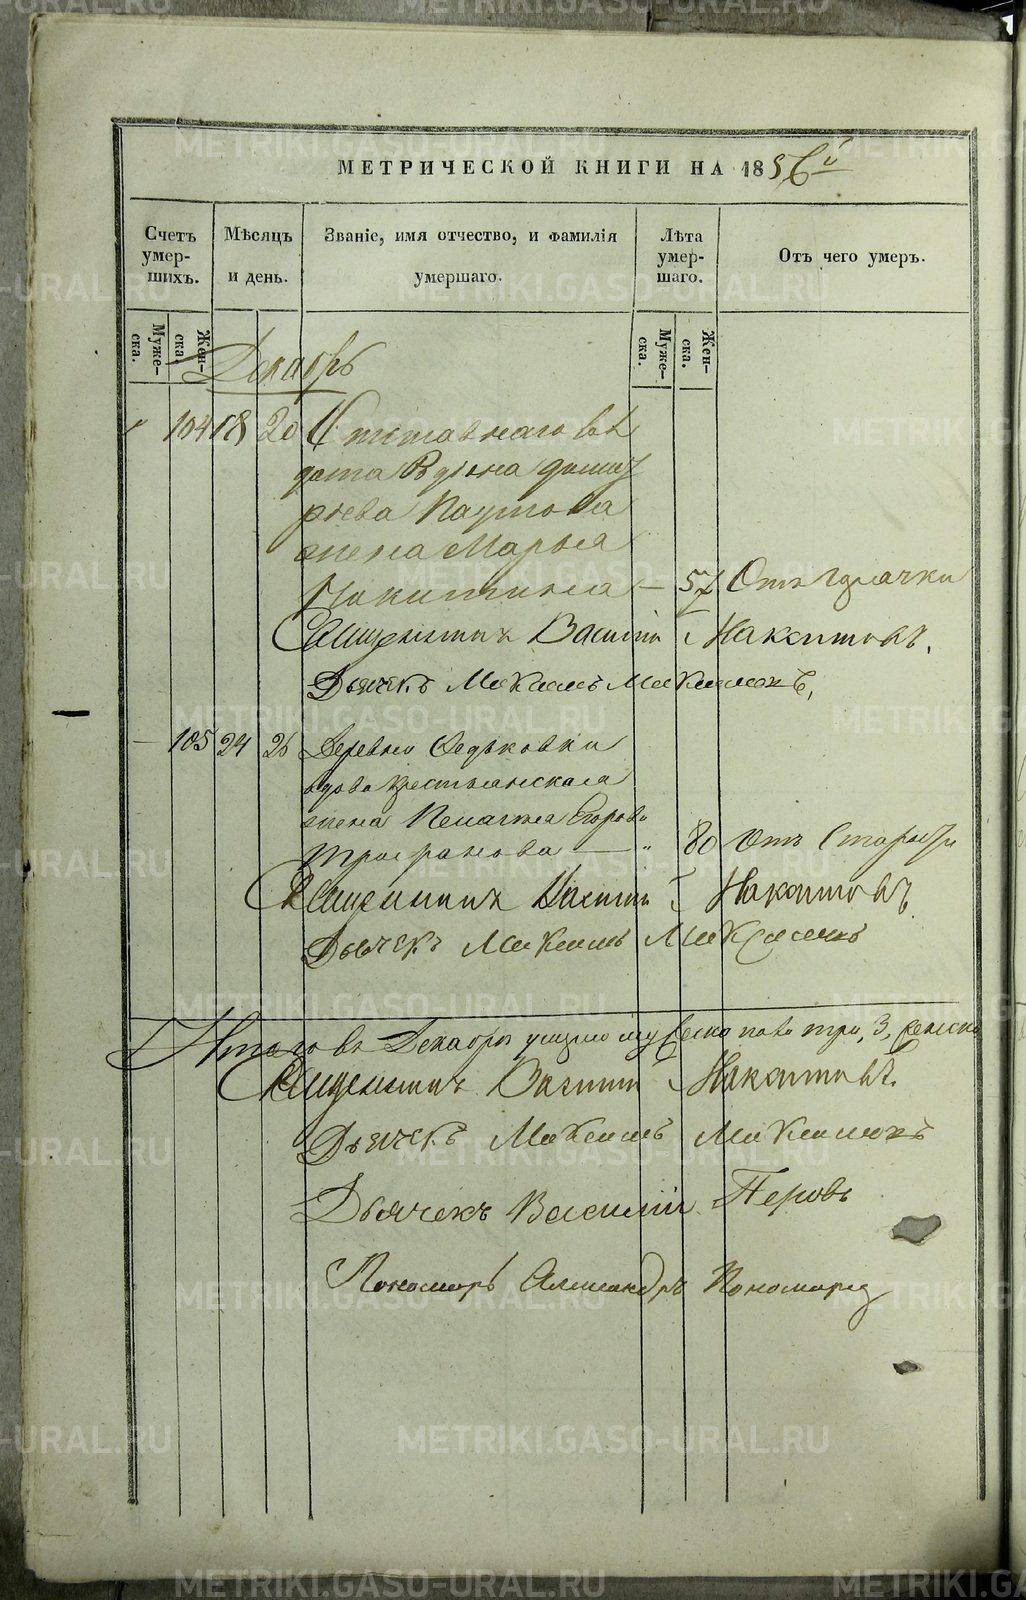 МЕТРИЧЕСКОЙ КНИГИ НА 1856й
Счетъ умер-шихъ.
Мѣсяцъ и день.
Званіе, имя отчество, и фамилія умершаго.
Лѣта умер-шаго.
Отъ чего умеръ.
Муже-ска.
Жен-ска.
Муже-ска.
Жен-ска.
Декабрь
104 18 20
жена Марья
Никитина — 57 Отъ горячки
Священникъ Василій Накситовъ.
Дьячекъ Максимъ
105 24 26 Деревни Федьковки
вдова крестьянская
жена Пелагия Егорова
Трофанова — „ 80 Отъ Старости
Священникъ Василій Накситовъ
Дьячекъ Максимъ
Итого въ Декабрѣ умершихъ мужеска пола три, 3, женска
Священникъ Василій Накситовъ.
Дьячекъ Максимъ
Дьячекъ Василій Перовъ
Пономарь Александръ Пономарев
METRIKI.GASO-URAL.RU